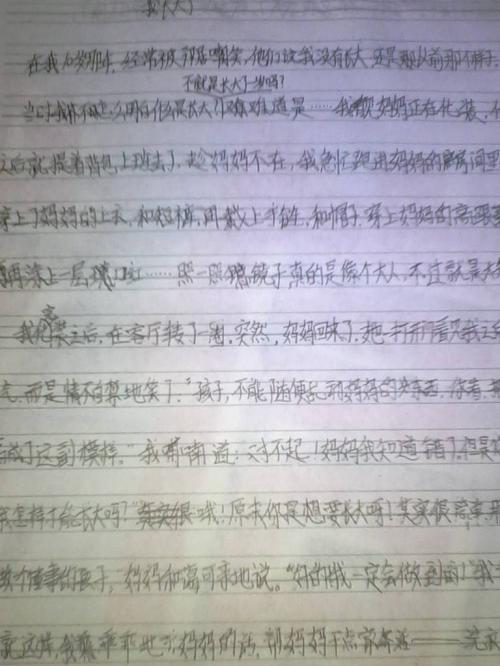 我长大了
在我10岁那年，经常被邻居嘲笑，他们说我没有长大，还是跟以前那个样子。
不就是长大了一岁吗？
当时我不怎么明白什么是长大，难道是……我见妈妈正在化装，
之后就提着背包上班去了，趁妈妈不在，我急忙跑进妈妈的房间里
穿上了妈妈的上衣，和短裤，再戴上手链，和帽子，穿上妈妈的高
再涂上一层口红……照一照镜子真的是像个大人，不这就是长
我之后，在客厅转了一圈，突然，妈妈回来了，她一打开看见我
气，而是情不自禁地笑了，“孩子，不能随便乱动妈妈的东西，你看
成了这副模样。”我喃喃道：对不起！妈妈我知道错了，但是
怎样才能长大吗？”哦！原来你是想要长大吗！其实很简单，
做个懂事的孩子，”妈妈和蔼可亲地说。“好的我一定会做到的！”我
就这样，我乖乖地听妈妈的话，帮妈妈干点家务活——洗